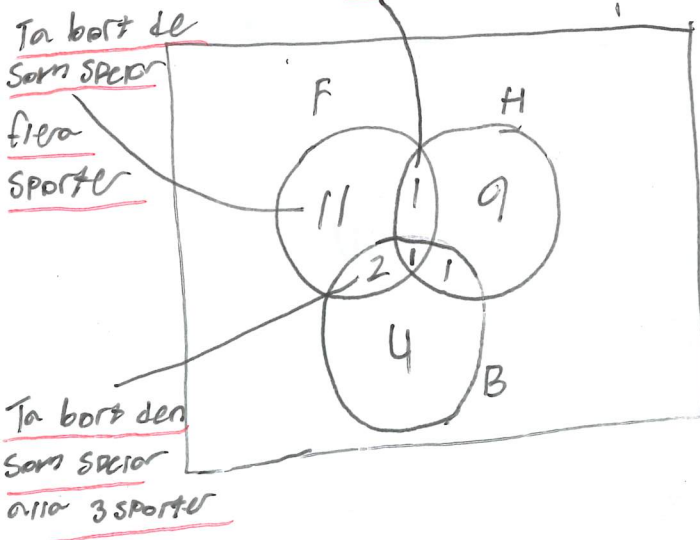 Ta bort de
Som spelar
flera
sporter
F
H
11
1
9
2
1
1
4
B
Ta bort den
Som spelar
alla 3 sporter